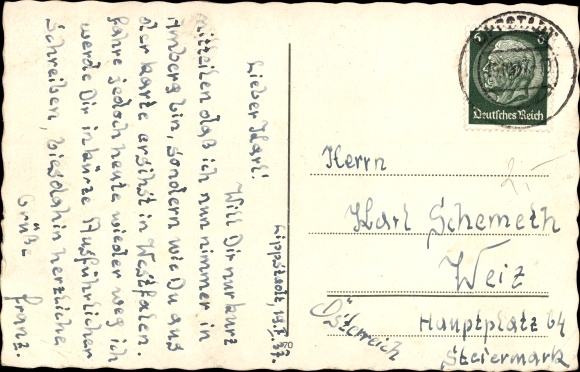 Lippstadt, 19.I.37.
Lieber Karl!
Will Dir nur kurz
mitteilen daß ich nun nimmer in
Amberg bin, sondern wie Du aus
der Karte ersihst in Westfalen.
Fahre jedoch heute wieder weg ich
werde Dir in kürze Ausführlicher
schreiben, bis dahin herzliche
Grüße
Franz.
5 5
Deutsches Reich
Herrn
2.-
Karl Schemeth
Weiz
Hauptplatz 64
Steiermark
Österreich